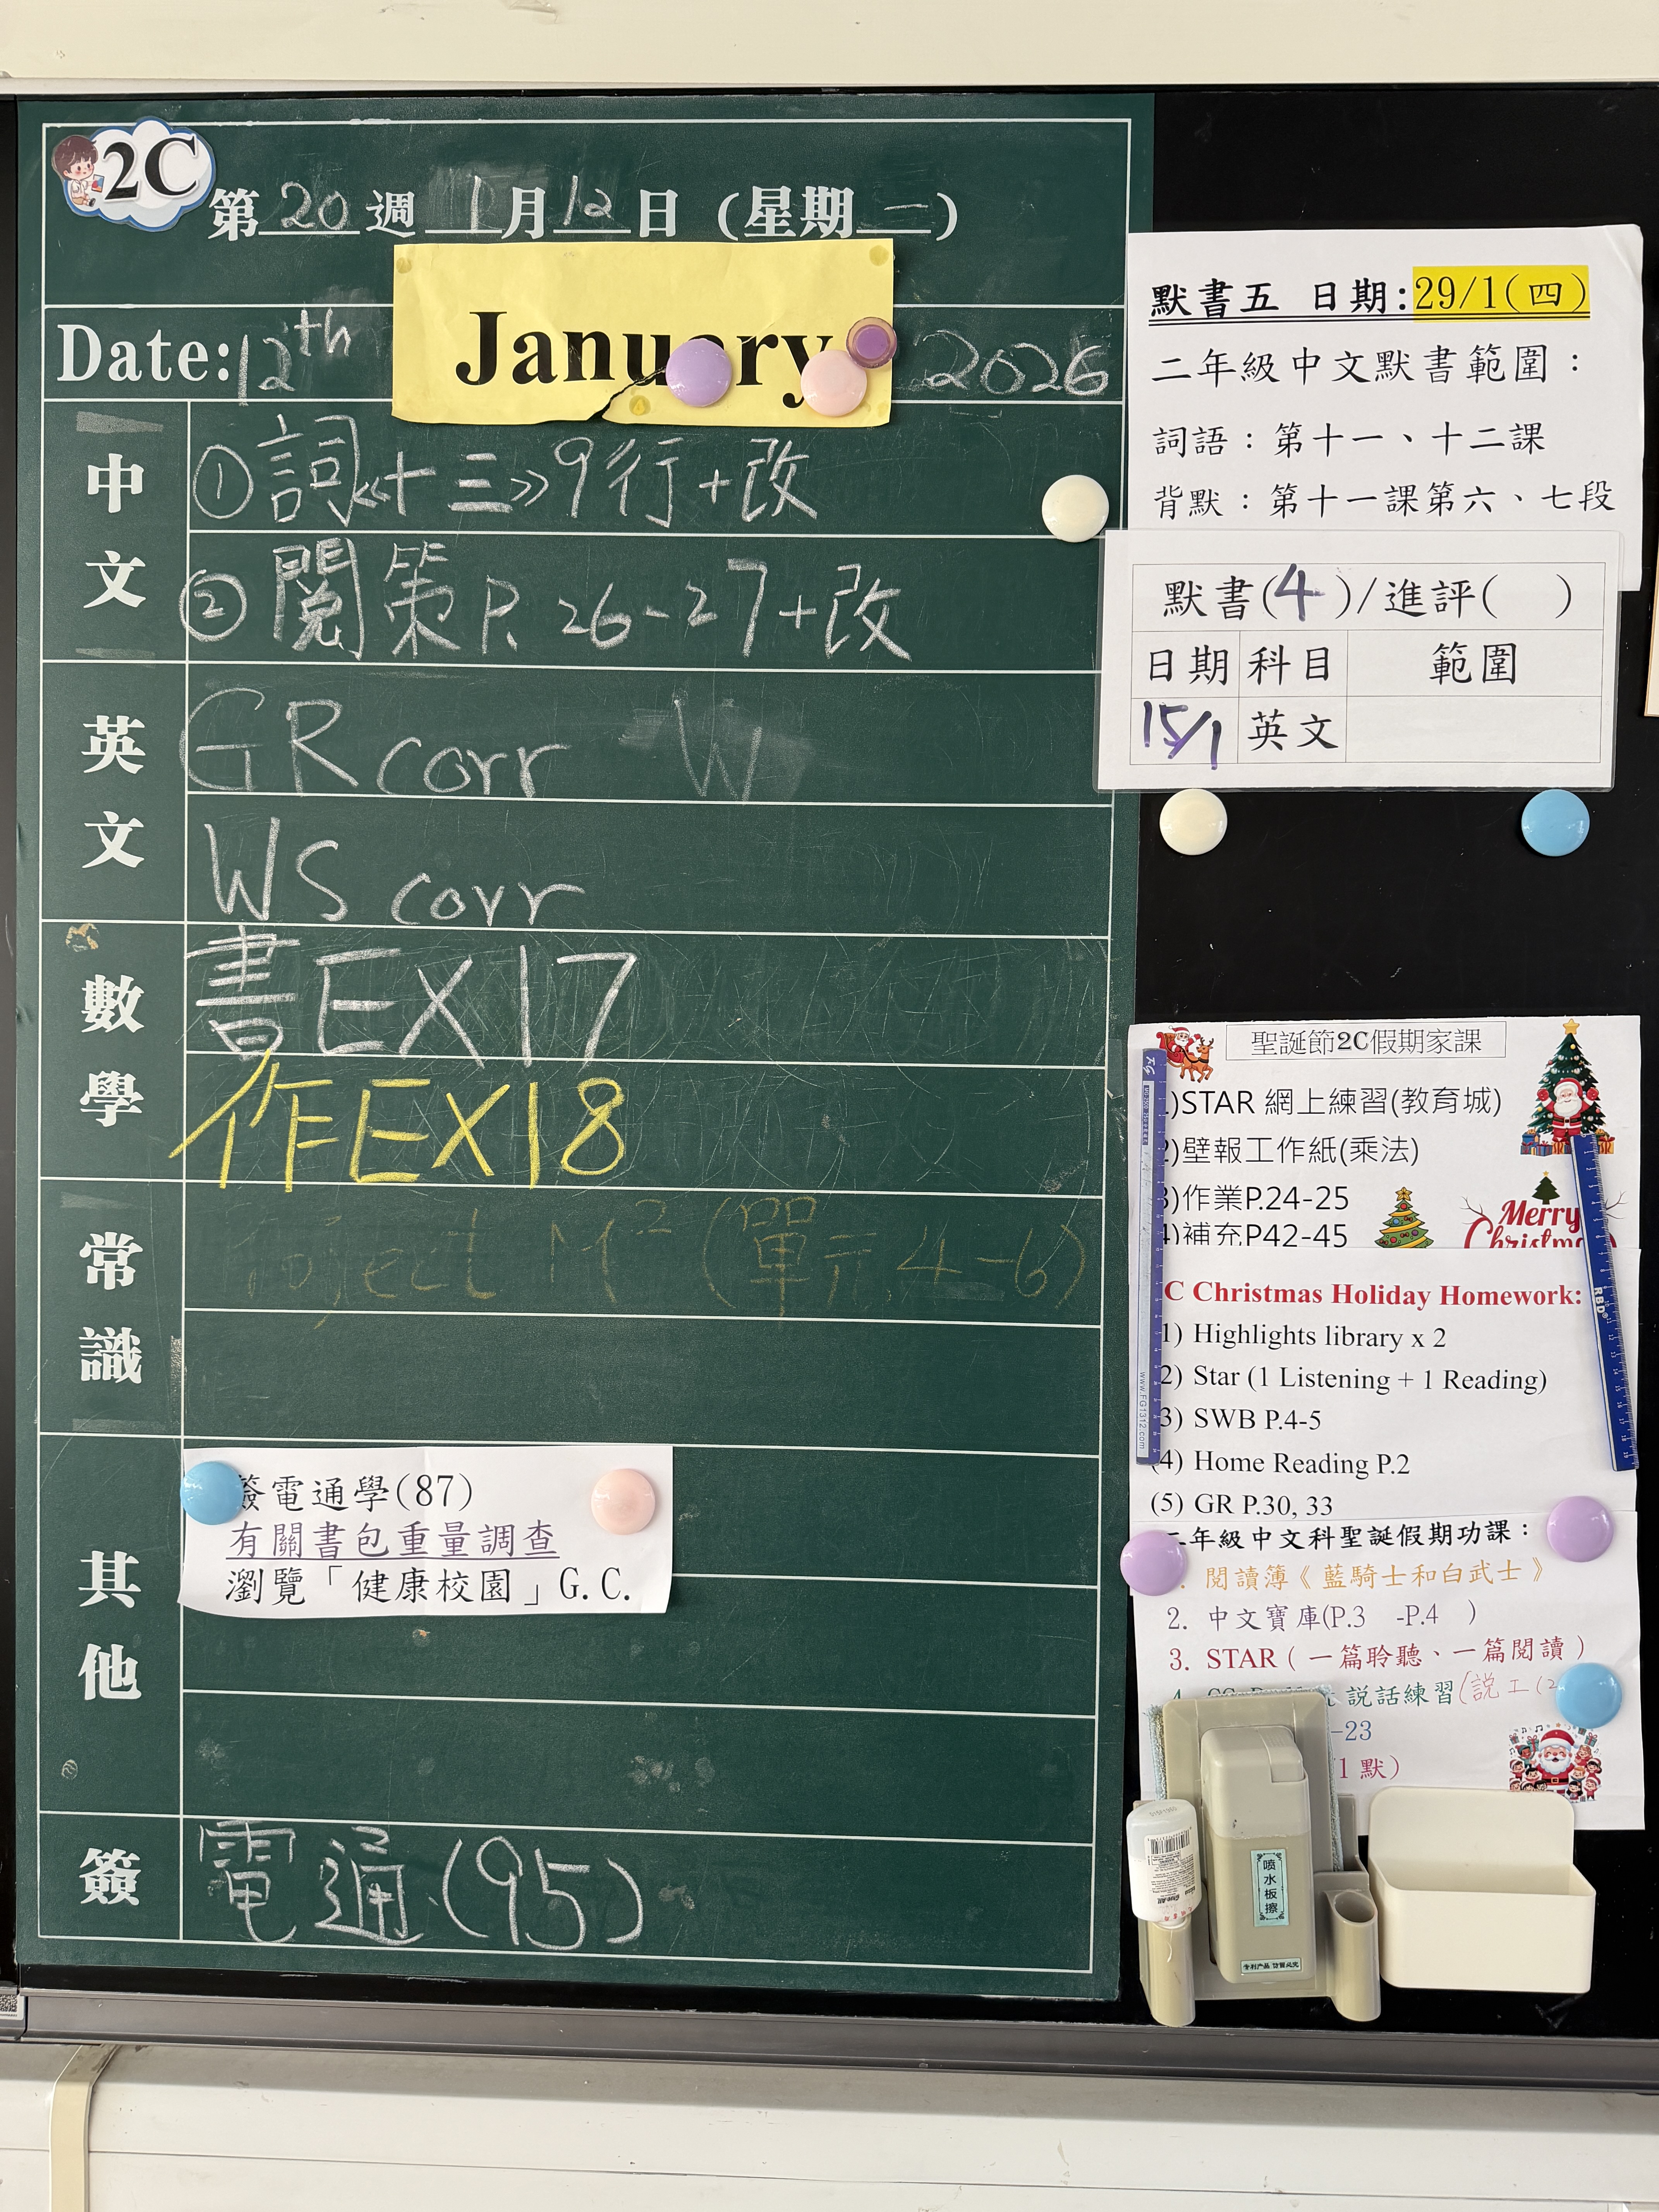 2C
第 20 週 1 月 12 日 (星期 一)
Date: 12th January 2026
中文
① 詞《十三》9行+改
② 閱策 P. 26-27+改
英文
GR corr W
WS corr
數學
書EX17
作EX18
常識
Project M² (單元 4-6)
其他
簽電通學(87)
有關書包重量調查
瀏覽「健康校園」G.C.
簽
電通(95)
默書五 日期:29/1(四)
二年級中文默書範圍：
詞語：第十一、十二課
背默：第十一課第六、七段
默書(4)/進評( )
日期 科目 範圍
15/1 英文
聖誕節2C假期家課
1)STAR 網上練習(教育城)
2)壁報工作紙(乘法)
3)作業P.24-25
4)補充P42-45
Merry
Christmas
C Christmas Holiday Homework:
1) Highlights library x 2
2) Star (1 Listening + 1 Reading)
3) SWB P.4-5
(4) Home Reading P.2
(5) GR P.30, 33
二年級中文科聖誕假期功課：
. 閱讀簿《藍騎士和白武士》
2. 中文寶庫(P.3 -P.4 )
3. STAR（一篇聆聽、一篇閱讀）
4. 説話練習(説工(2
-23
1 默）
噴水板擦
专利产品 仿冒必究
RBD
www.FG1312.com